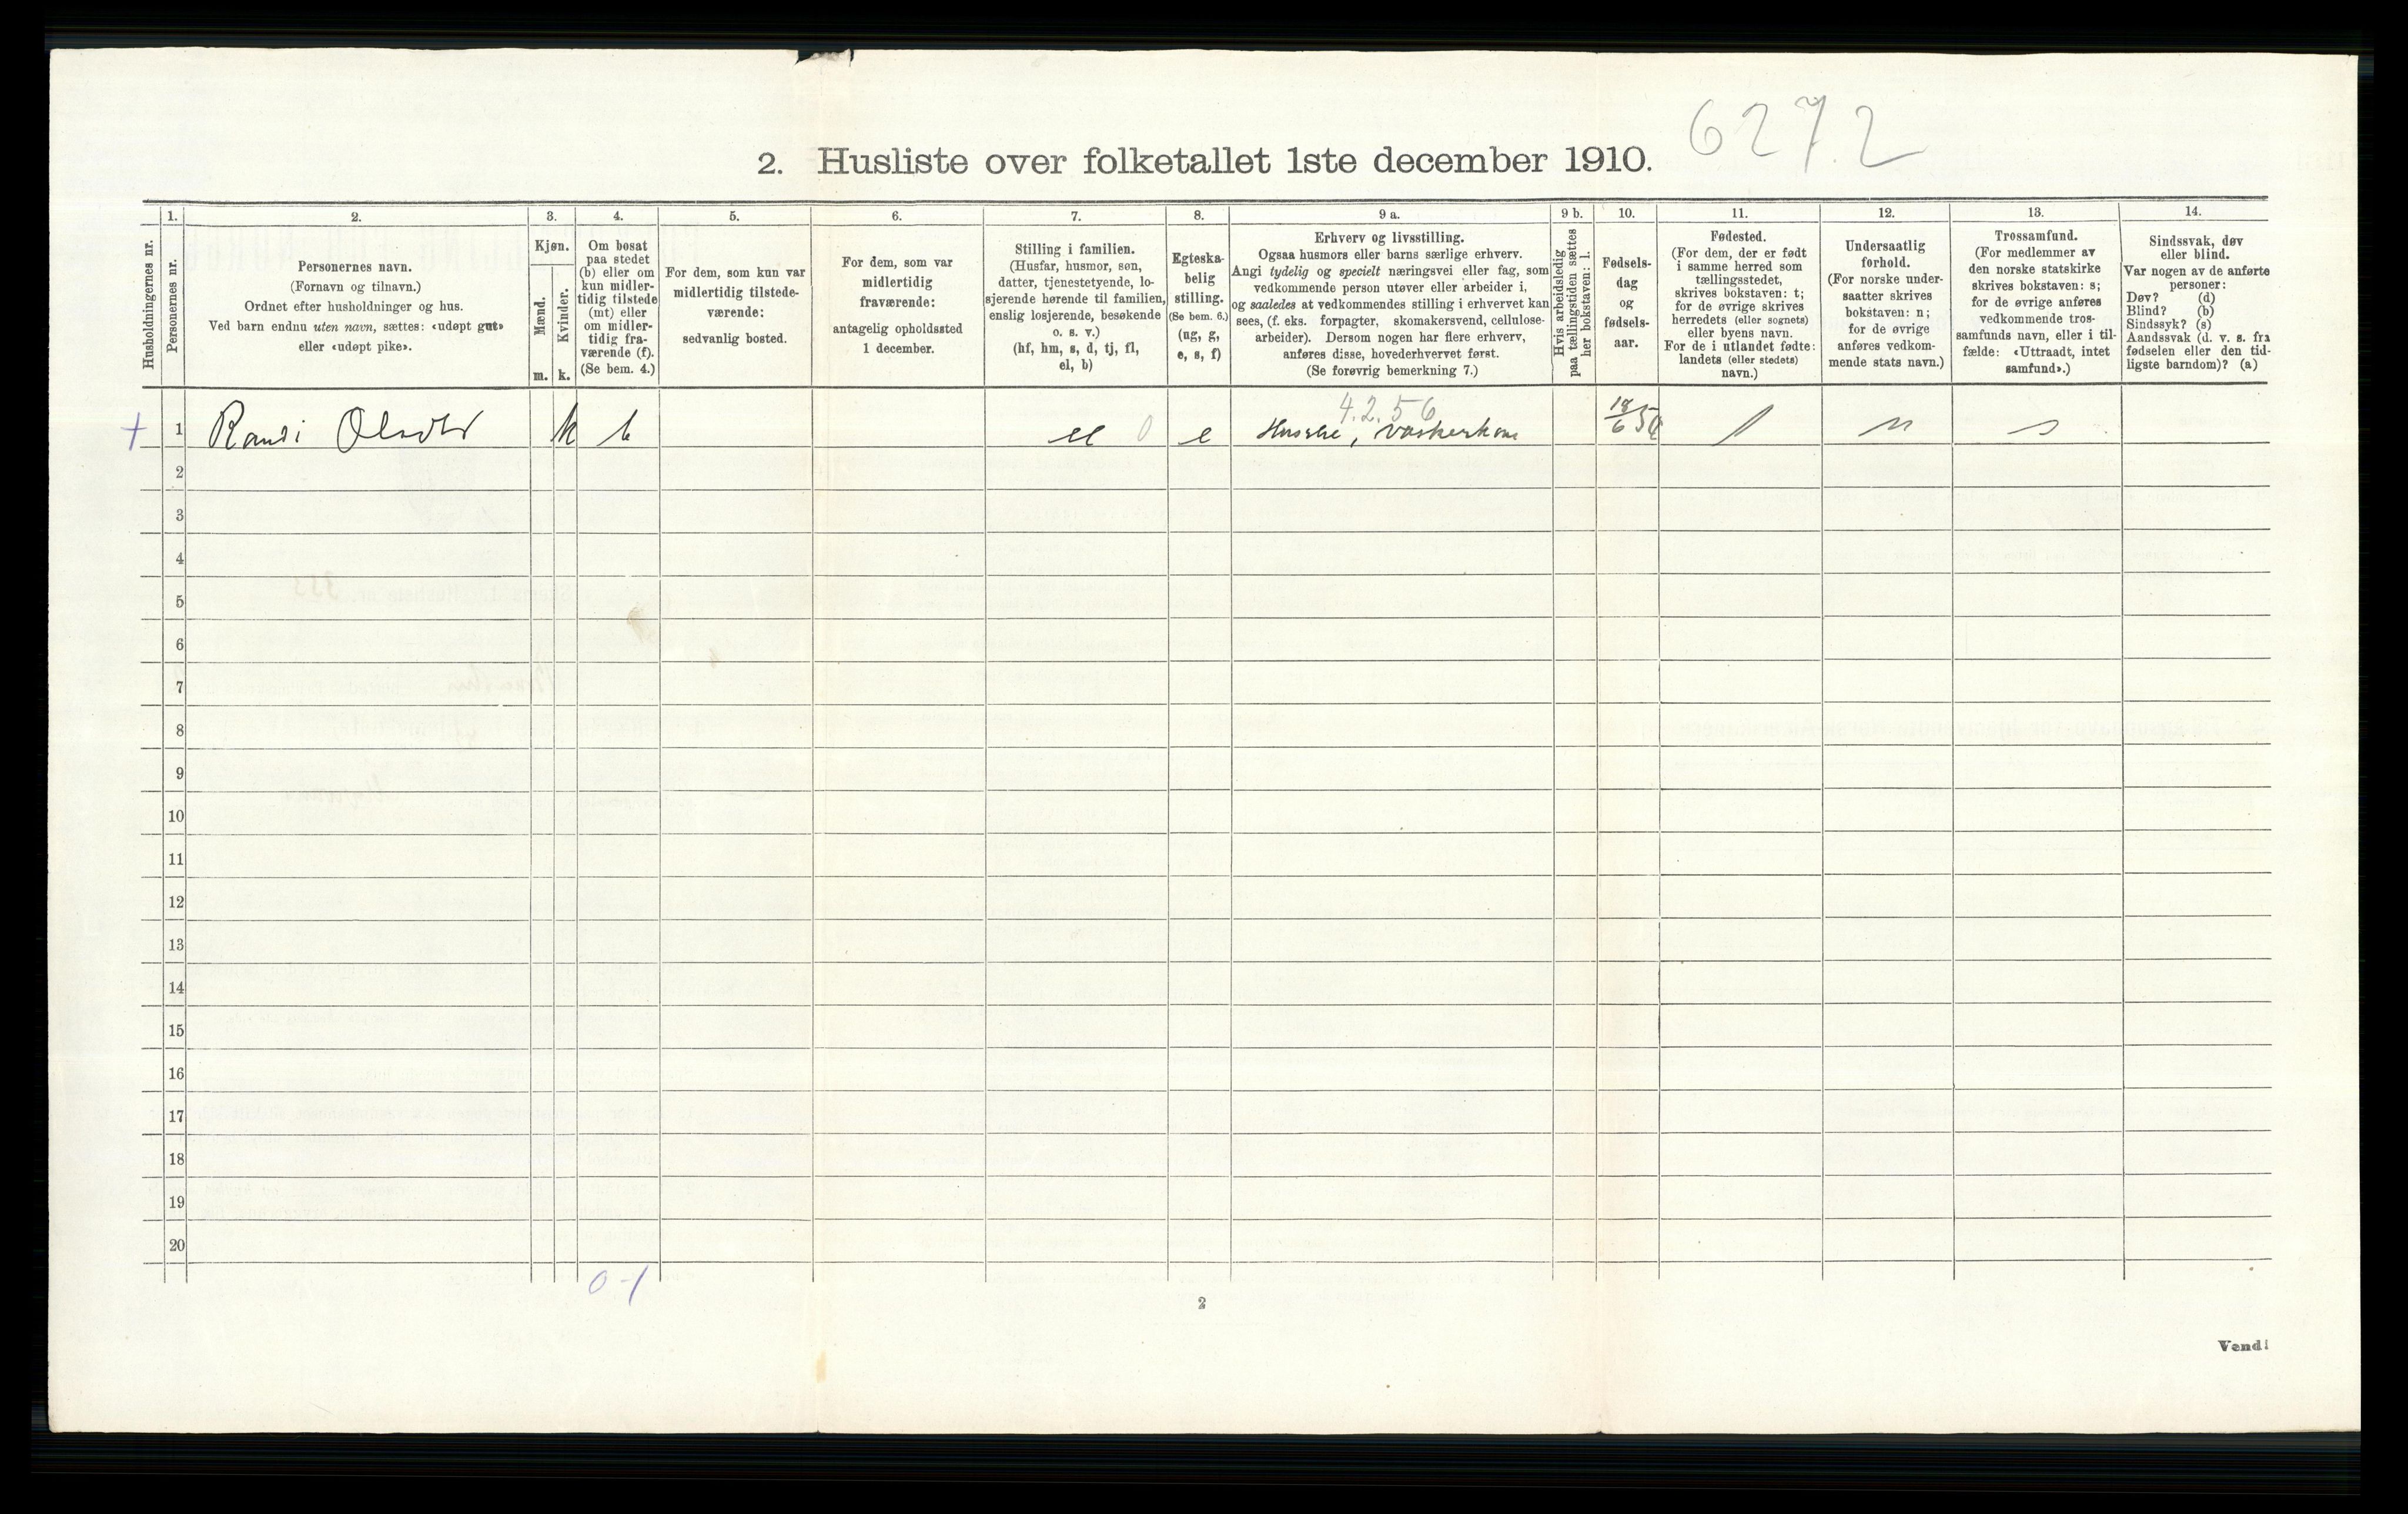 6272
2. Husliste over folketallet 1ste december 1910.
Husholdningernes nr.
1.
Personernes nr.
2.
Personernes navn.
(Fornavn og tilnavn.)
Ordnet efter husholdninger og hus.
Ved barn endnu uten navn, sættes: «udøpt gut»
eller «udøpt pike».
3.
Kjøn.
Mænd.
Kvinder.
m. k.
4.
Om bosat
paa stedet
(b) eller om
kun midler-
tidig tilstede
(mt) eller
om midler-
tidig fra-
værende (f).
(Se bem. 4.)
5.
For dem, som kun var
midlertidig tilstede-
værende:
sedvanlig bosted.
6.
For dem, som var
midlertidig
fraværende:
antagelig opholdssted
1 december.
7.
Stilling i familien.
(Husfar, husmor, søn,
datter, tjenestetyende, lo-
sjerende hørende til familien,
enslig losjerende, besøkende
o. s. v.)
(hf, hm, s, d, tj, fl,
el, b)
8.
Egteska-
belig
stilling.
(Se bem. 6.)
(ug, g,
e, s, f)
9 a.
Erhverv og livsstilling.
Ogsaa husmors eller barns særlige erhverv.
Angi tydelig og specielt næringsvei eller fag, som
vedkommende person utøver eller arbeider i,
og saaledes at vedkommendes stilling i erhvervet kan
sees, (f. eks. forpagter, skomakersvend, cellulose-
arbeider). Dersom nogen har flere erhverv,
anføres disse, hovederhvervet først.
(Se forøvrig bemerkning 7.)
9 b.
Hvis arbeidsledig
paa tællingstiden sættes
her bokstaven: l.
10.
Fødsels-
dag
og
fødsels-
aar.
11.
Fødested.
(For dem, der er født
i samme herred som
tællingsstedet,
skrives bokstaven: t;
for de øvrige skrives
herredets (eller sognets)
eller byens navn.
For de i utlandet fødte:
landets (eller stedets)
navn.)
12.
Undersaatlig
forhold.
(For norske under-
saatter skrives
bokstaven: n;
for de øvrige
anføres vedkom-
mende stats navn.)
13.
Trossamfund.
(For medlemmer av
den norske statskirke
skrives bokstaven: s;
for de øvrige anføres
vedkommende tros-
samfunds navn, eller i til-
fælde: «Uttraadt, intet
samfund».)
14.
Sindssvak, døv
eller blind.
Var nogen av de anførte
personer:
Døv? (d)
Blind? (b)
Sindssyk? (s)
Aandssvak (d. v. s. fra
fødselen eller den tid-
ligste barndom)? (a)
4.2.56
+ 1 Randi Olsdtr k b el 0 e vaskerkone 18/6 54 t n s
2
3
4
5
6
7
8
9
10
11
12
13
14
15
16
17
18
19
20
0-1
2
Vend!